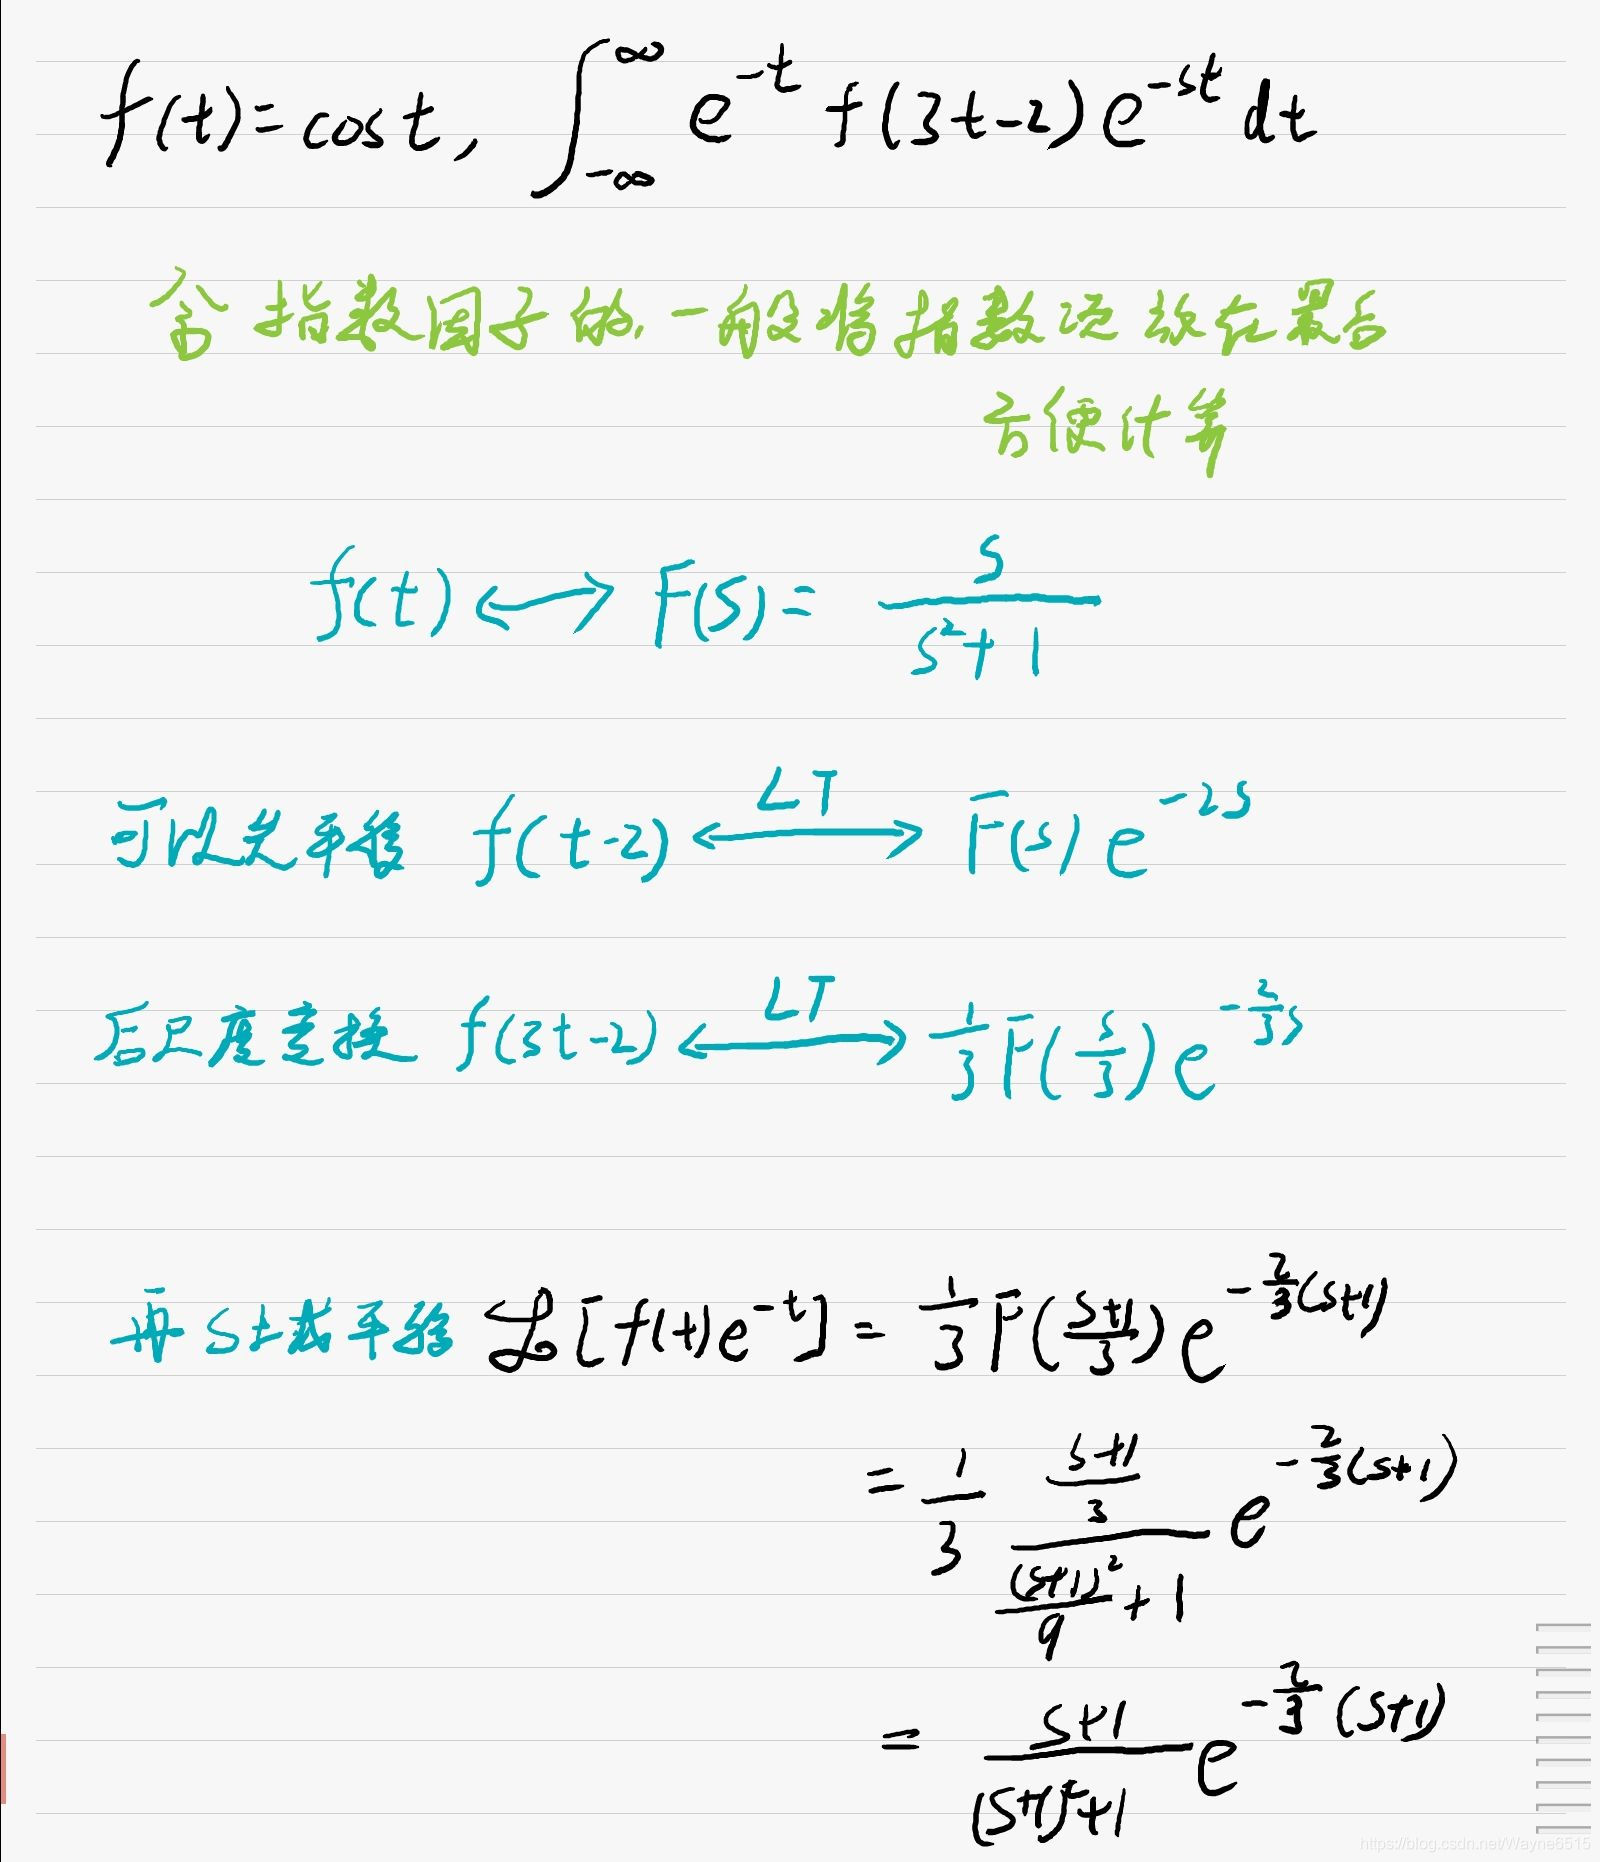 f(t)=cos t, ∫_{-∞}^{∞} e^{-t} f(3t-2) e^{-st} dt
含指数因子的,一般将指数项放在最后
方便计算
f(t) ⟷ F(s) = \frac{s}{s^2+1}
可以先平移 f(t-2) \overset{LT}{⟷} F(s) e^{-2s}
后尺度变换 f(3t-2) \overset{LT}{⟷} \frac{1}{3} F(\frac{s}{3}) e^{-\frac{2}{3}s}
再 S域平移 ℒ[f(t)e^{-t}] = \frac{1}{3} F(\frac{s+1}{3}) e^{-\frac{2}{3}(s+1)}
= \frac{1}{3} \frac{\frac{s+1}{3}}{\frac{(s+1)^2}{9}+1} e^{-\frac{2}{3}(s+1)}
= \frac{s+1}{(s+1)^2+1} e^{-\frac{2}{3}(s+1)}
https://blog.csdn.net/Wayne6515